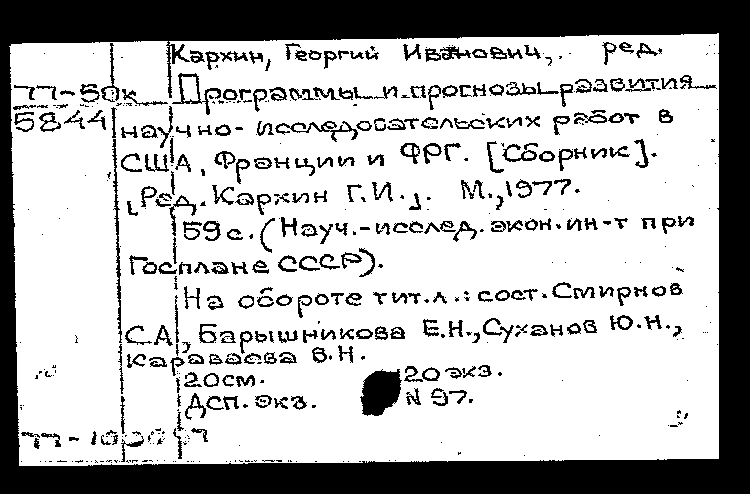 Кархин, Георгий Иванович, ред.
77-50к Программы и прогнозы развития
5844 научно-исследовательских работ в
США, Франции и ФРГ. [Сборник].
[Ред. Кархин Г.И.]. М., 1977.
59с. (Науч.-исслед. экон. ин-т при
Госплане СССР).
На обороте тит.л.: сост. Смирнов
С.А., Барышникова Е.Н., Суханов Ю.Н.,
Караваева В.Н.
20см. 20 экз.
ДСП. Экз. N 97.